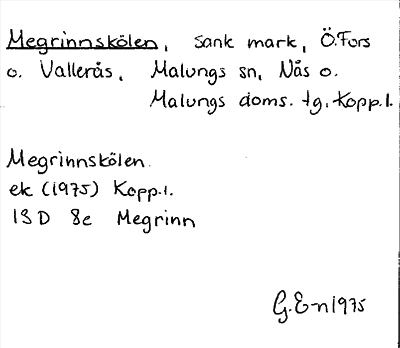 Megrinnskölen, Sank mark, Ö.Fors
o. Vallerås, Malungs sn, Nås o.
Malungs doms. tg. Kopp.l.
Megrinnskölen
ek (1975) Kopp.l.
13D 8e Megrinn
G.E-n 1975